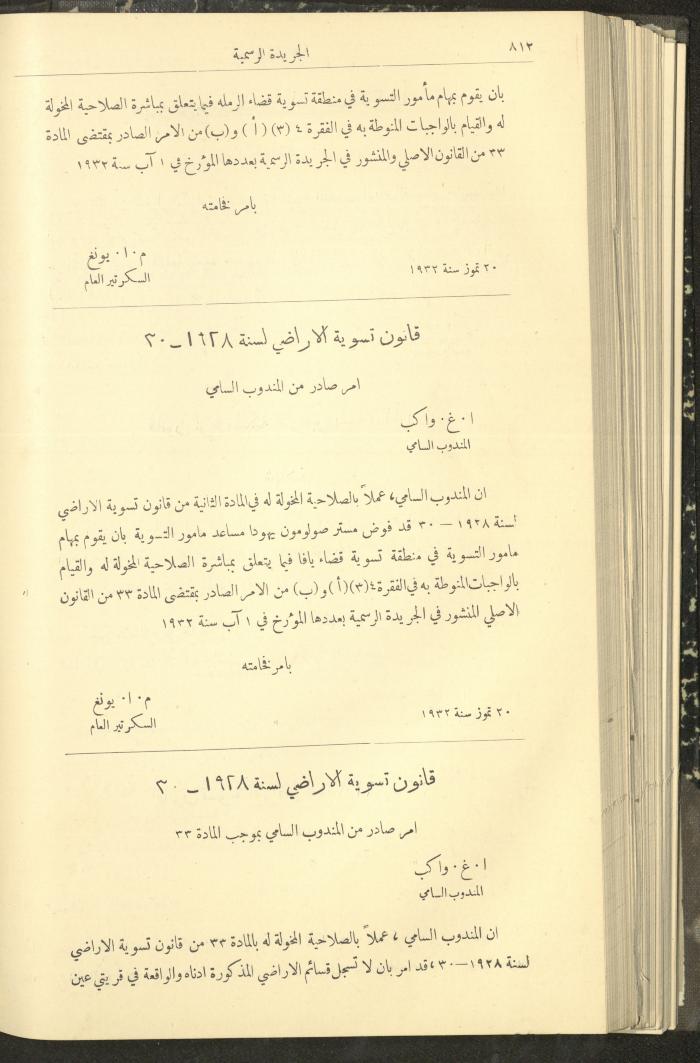 ٨١٢
الجريدة الرسمية
بان يقوم بمهام مأمور التسوية في منطقة تسوية قضاء الرمله فيما يتعلق بمباشرة الصلاحية المخولة
له والقيام بالواجبات المنوطة به في الفقرة ٤ (٣) (أ) و(ب) من الامر الصادر بمقتضى المادة
٣٣ من القانون الاصلي والمنشور في الجريدة الرسمية بعددها المؤرخ في ١ آب سنة ١٩٣٢
بامر فخامته
م٠ا٠ يونغ
السكرتير العام
٢٠ تموز سنة ١٩٣٢
قانون تسوية الاراضي لسنة ١٩٢٨ – ٣٠
امر صادر من المندوب السامي
ا٠غ٠ واكب
المندوب السامي
ان المندوب السامي، عملاً بالصلاحية المخولة له في المادة الثانية من قانون تسوية الاراضي
لسنة ١٩٢٨ – ٣٠ قد فوض مستر صولومون يهودا مساعد مامور التسوية بان يقوم بمهام
مامور التسوية في منطقة تسوية قضاء يافا فيما يتعلق بمباشرة الصلاحية المخولة له والقيام
بالواجبات المنوطة به في الفقرة ٤(٣)(أ) و(ب) من الامر الصادر بمقتضى المادة ٣٣ من القانون
الاصلي المنشور في الجريدة الرسمية بعددها المؤرخ في ١ آب سنة ١٩٣٢
بامر فخامته
م٠ا٠ يونغ
السكرتير العام
٢٠ تموز سنة ١٩٣٢
قانون تسوية الاراضي لسنة ١٩٢٨ – ٣٠
امر صادر من المندوب السامي بموجب المادة ٣٣
ا٠غ٠ واكب
المندوب السامي
ان المندوب السامي ، عملاً بالصلاحية المخولة له بالمادة ٣٣ من قانون تسوية الاراضي
لسنة ١٩٢٨–٣٠، قد امر بان لا تسجل قسائم الاراضي المذكورة ادناه والواقعة في قريتي عين